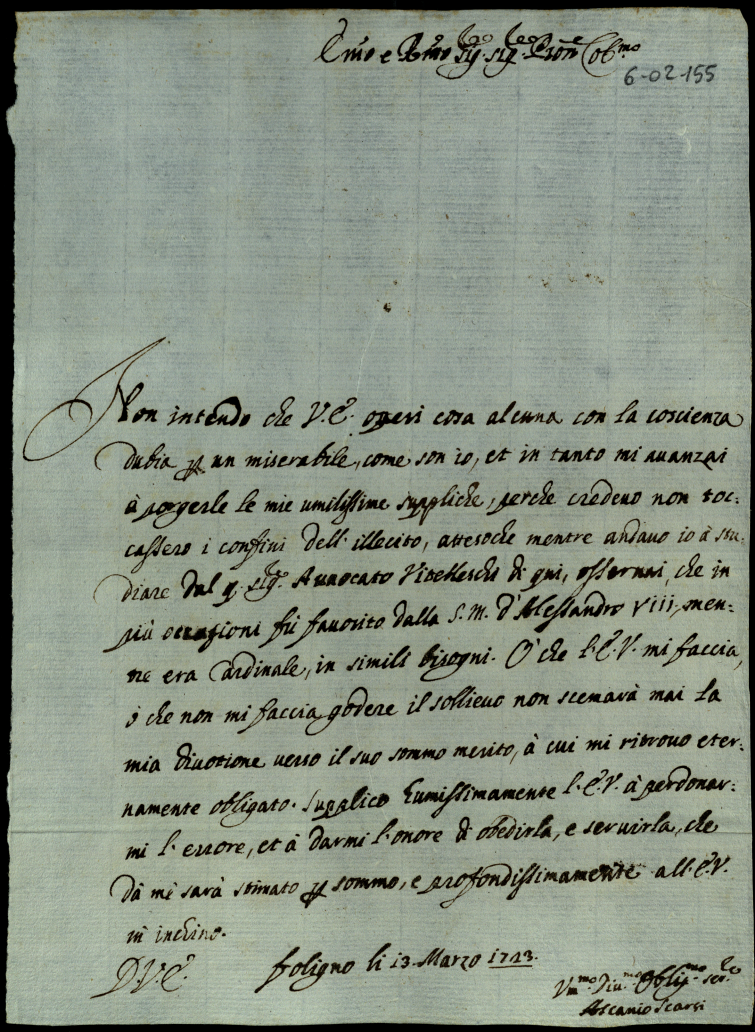 E.mo e R.mo Sig.re Sig.re P̃ron Col.mo
6-02-155
Non intendo che V.E. operi cosa alcuna con la coscienza
dubia ꝑ un miserabile, come son io, et in tanto mi avanzai
à porgerle le mie umilissime suppliche, perche credevo non toc:
cassero i confini dell'illecito, attesoche mentre andavo io à stu:
diare dal q. Sig.re Avvocato Vitelleschi di qui, osservai, che in
più occasioni fù favorito dalla S.M. d'Alessandro VIII, men:
tre era Cardinale, in simili bisogni. O' che l'E.V. mi faccia,
ò che non mi faccia godere il sollievo non scemarà mai la
mia divotione verso il suo sommo merito, à cui mi ritrovo eter:
namente obligato. Supplico humissimamente l'E.V. à perdonar:
mi l'errore, et à darmi l'onore di obedirla, e servirla, che
dà me sarà stimato ꝑ sommo, e profondissimamente all'E.V.
m'inchino.
D.V.E. Foligno li 13. Marzo 1723.
Um.mo Div.mo Oblig.mo Ser.re
Ascanio Scarsi